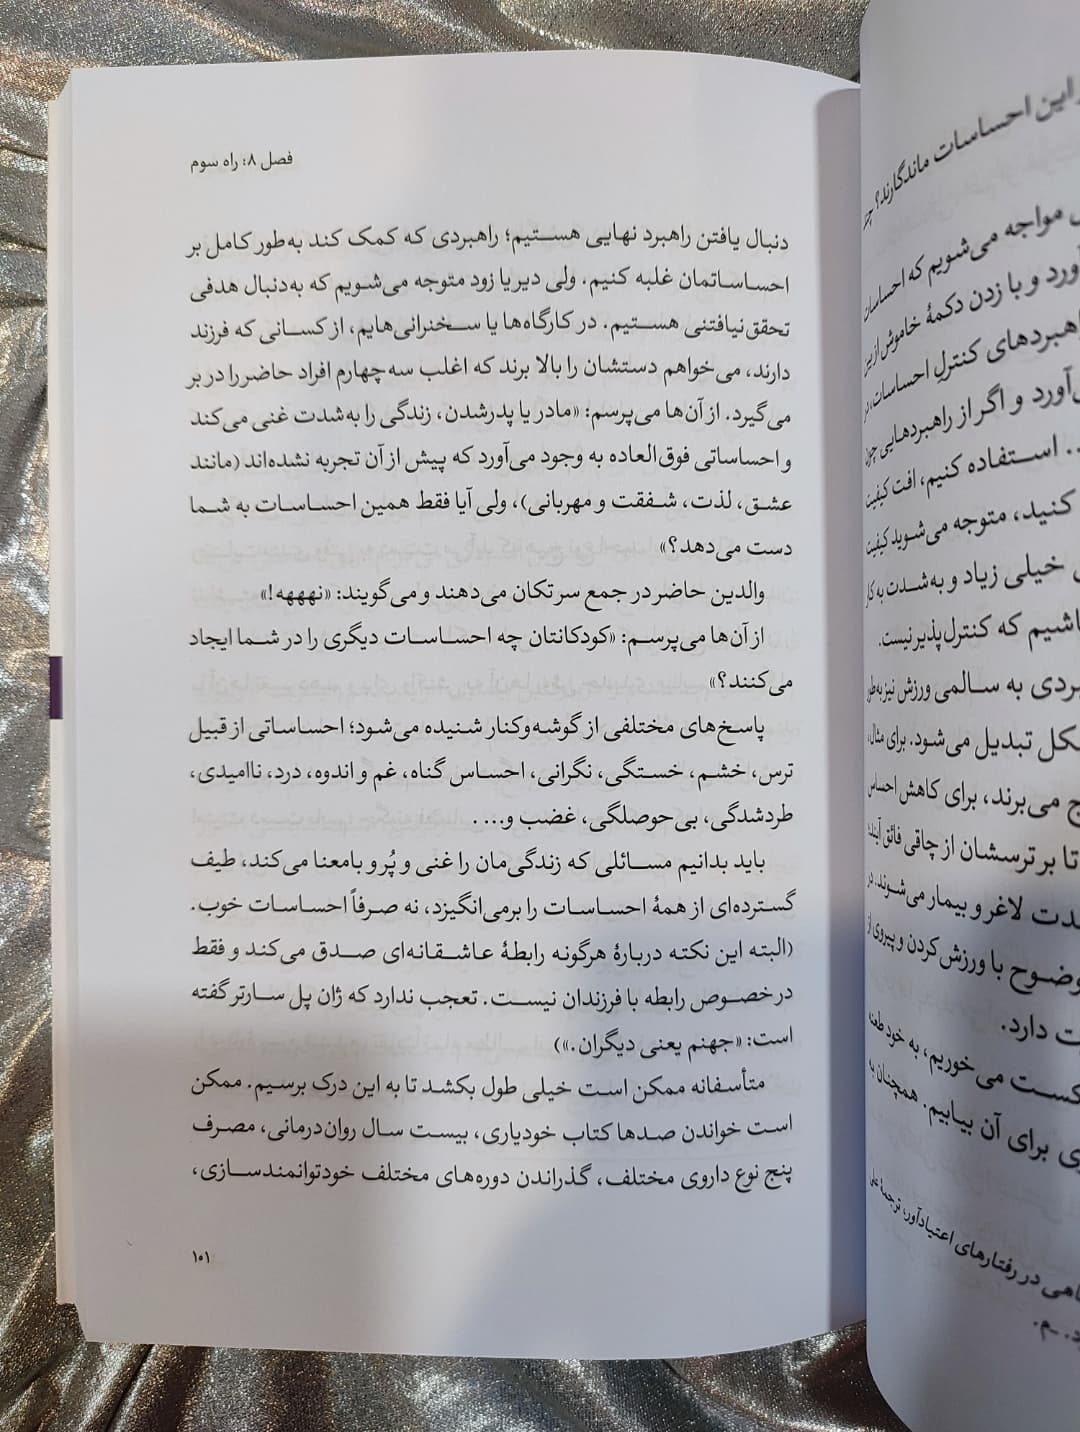 فصل ۸: راه سوم
دنبال یافتن راهبرد نهایی هستیم؛ راهبردی که کمک کند به‌طور کامل بر
احساساتمان غلبه کنیم. ولی دیر یا زود متوجه می‌شویم که به‌دنبال هدفی
تحقق‌نیافتنی هستیم. در کارگاه‌ها یا سخنرانی‌هایم، از کسانی که فرزند
دارند، می‌خواهم دستشان را بالا برند که اغلب سه‌چهارم افراد حاضر را در بر
می‌گیرد. از آن‌ها می‌پرسم: «مادر یا پدرشدن، زندگی را به‌شدت غنی می‌کند
و احساساتی فوق‌العاده به وجود می‌آورد که پیش از آن تجربه نشده‌اند (مانند
عشق، لذت، شفقت و مهربانی)، ولی آیا فقط همین احساسات به شما
دست می‌دهد؟»
والدین حاضر در جمع سر تکان می‌دهند و می‌گویند: «نهههه!»
از آن‌ها می‌پرسم: «کودکانتان چه احساسات دیگری را در شما ایجاد
می‌کنند؟»
پاسخ‌های مختلفی از گوشه‌وکنار شنیده می‌شود؛ احساساتی از قبیل
ترس، خشم، خستگی، نگرانی، احساس گناه، غم و اندوه، درد، ناامیدی،
طردشدگی، بی‌حوصلگی، غضب و... .
باید بدانیم مسائلی که زندگی‌مان را غنی و پُر و بامعنا می‌کند، طیف
گسترده‌ای از همهٔ احساسات را برمی‌انگیزد، نه صرفاً احساسات خوب.
(البته این نکته دربارهٔ هرگونه رابطهٔ عاشقانه‌ای صدق می‌کند و فقط
درخصوص رابطه با فرزندان نیست. تعجب ندارد که ژان پل سارتر گفته
است: «جهنم یعنی دیگران.»)
متأسفانه ممکن است خیلی طول بکشد تا به این درک برسیم. ممکن
است خواندن صدها کتاب خودیاری، بیست سال روان‌درمانی، مصرف
پنج نوع داروی مختلف، گذراندن دوره‌های مختلف خودتوانمندسازی،
۱۰۱
این احساسات ماندگارند؟
مواجه می‌شویم که احساسات
و با زدن دکمهٔ خاموش از بین
راهبردهای کنترلِ احساسات، در
و اگر از راهبردهایی چون
استفاده کنیم، افت کیفیت
کنید، متوجه می‌شوید کیفیت
خیلی زیاد و به‌شدت به کار
که کنترل‌پذیر نیست.
به سالمی ورزش نیز به‌طور
تبدیل می‌شود. برای مثال،
می‌برند، برای کاهش احساس
تا بر ترسشان از چاقی فائق آیند؛
لاغر و بیمار می‌شوند، در
با ورزش‌کردن و پیروی از
دارد.
می‌خوریم، به خود طعنه
برای آن بیابیم. همچنان به
در رفتارهای اعتیادآور، ترجمهٔ علی
م.